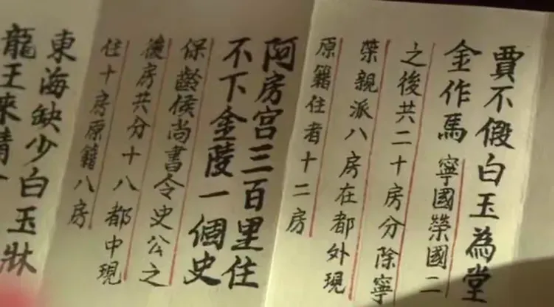 賈不假白玉為堂
金作馬寧國榮國二
之後共二十房分除寧
榮親派八房在都外現
原籍住者十二房
阿房宮三百里住
不下金陵一個史
保齡侯尚書令史公之
後房共分十八都中現
住十房原籍八房
東海缺少白玉牀
龍王來請